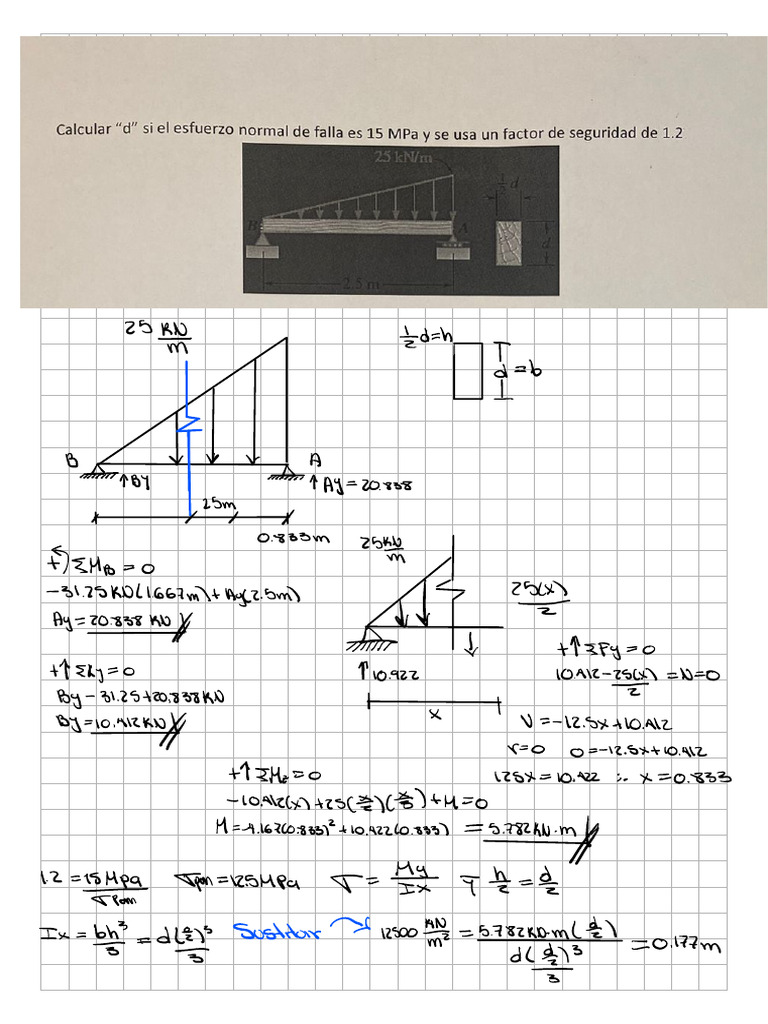 Calcular “d” si el esfuerzo normal de falla es 15 MPa y se usa un factor de seguridad de 1.2
25 kN/m
1/2 d
B
A
d
2.5 m
25 KN/m
1/2 d=h
d = b
B
A
↑BY
↑ Ay = 20.838
25m
0.833m
+) ΣMB = 0
-31.25 KN(1.667m) + Ay(2.5m)
Ay = 20.838 KN
+↑ Σ y = 0
By - 31.25+20.838KN
By = 10.412KN
25KN/m
25(x)/2
↑ 10.922
x
+↑ ΣFy = 0
10.412 - 25(x)/2 = N = 0
V = -12.5x + 10.412
v=0 0 = -12.5x + 10.412
12.5x = 10.422 ∴ x = 0.833
+↑ ΣMz = 0
-10.412(x) + 25(x/2)(x/3) + M = 0
M = -4.167(0.833)² + 10.422(0.833) = 5.782KN·m
1.2 = 15Mpa/σpom σpom = 12.5MPa σ = My/Ix ȳ h/2 = d/2
Ix = bh³/3 = d(d/2)³/3 Sustituir 12500 KN/m² = 5.782KN·m (d/2) / d(d/2)³/3 = 0.177m